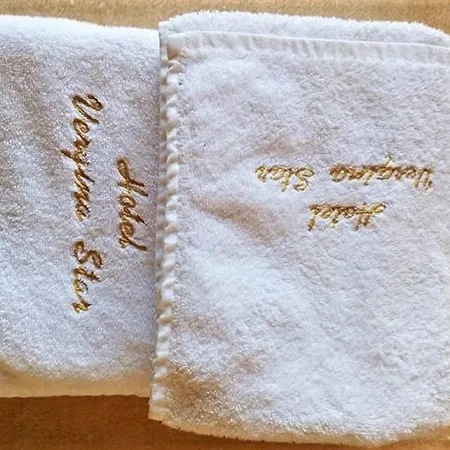 Hotel
Vergina Star
Hotel
Vergina Star